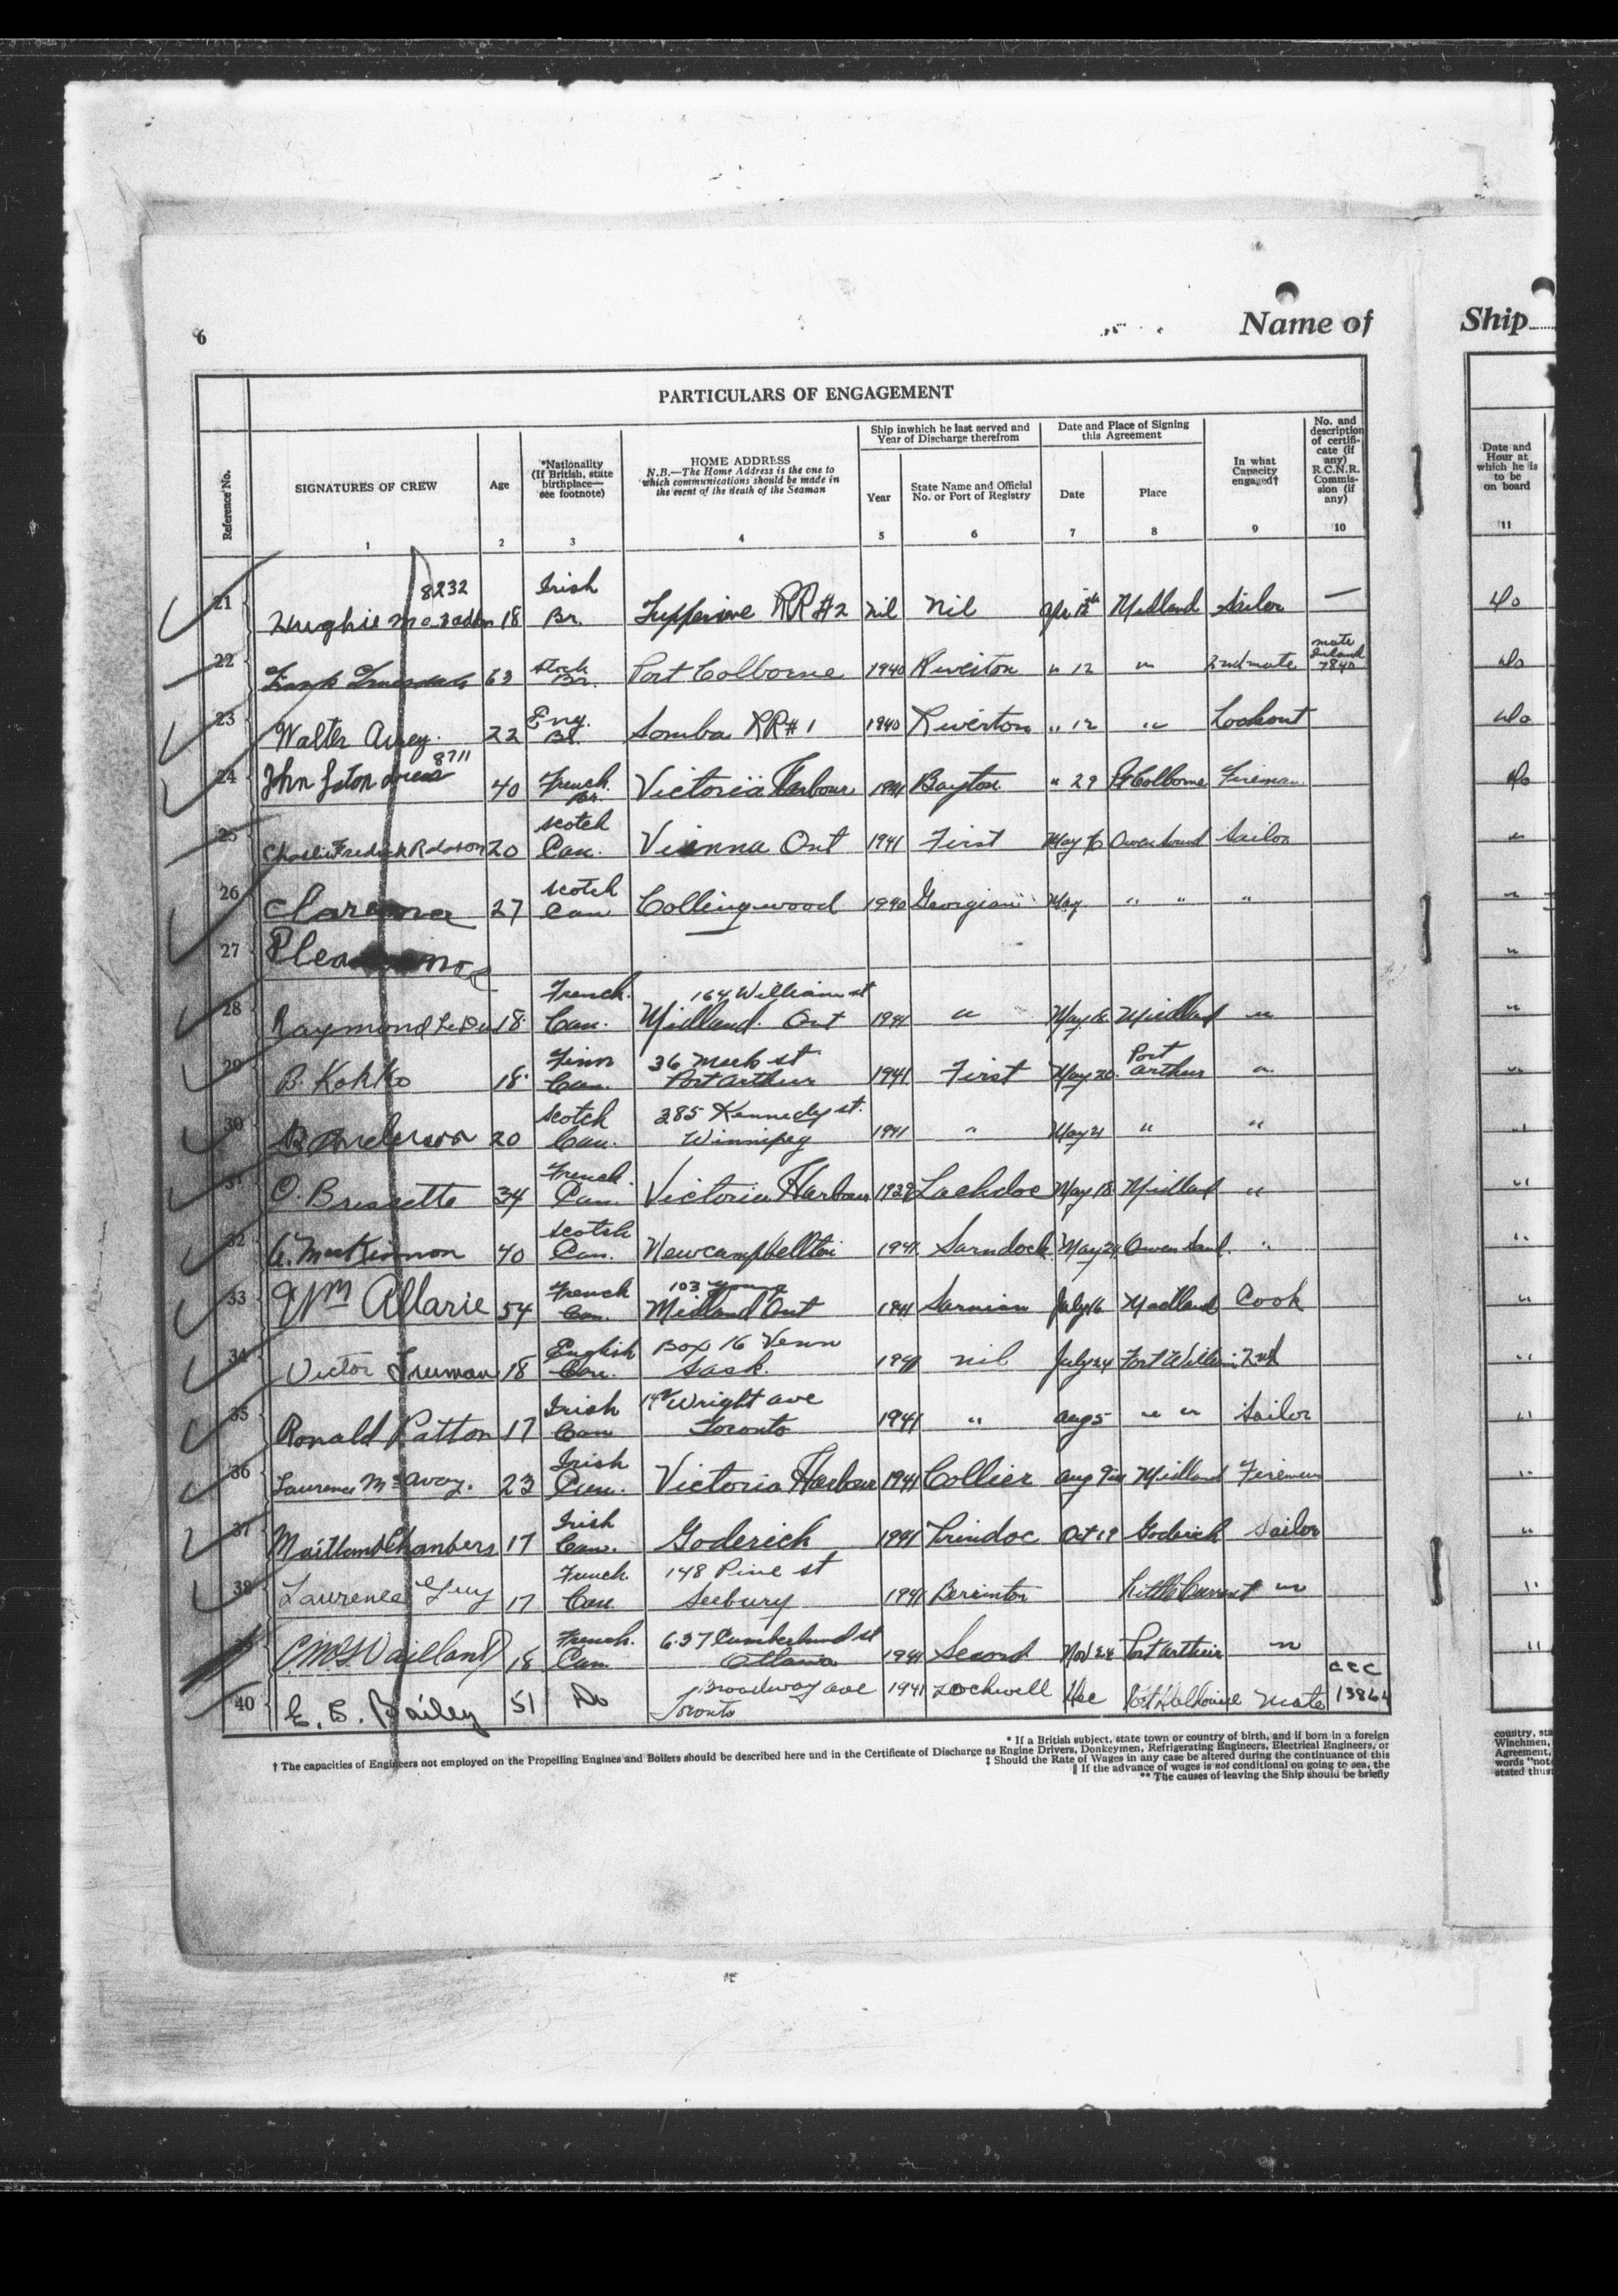 6
Name of
Ship
PARTICULARS OF ENGAGEMENT
Reference No.
SIGNATURES OF CREW
Age
*Nationality
(If British, state
birthplace—
see footnote)
HOME ADDRESS
N.B.—The Home Address is the one to
which communications should be made in
the event of the death of the Seaman
Ship in which he last served and
Year of Discharge therefrom
Year
State Name and Official
No. or Port of Registry
Date and Place of Signing
this Agreement
Date
Place
In what
Capacity
engaged†
No. and
description
of certifi-
cate (if
any)
R.C.N.R.
Commis-
sion (if
any)
Date and
Hour at
which he is
to be
on board
1 2 3 4 5 6 7 8 9 10 11
8232
Irish
21 Hughie 18 Br. RR #2 nil nil 12th Midland Sailor — Do
mate
Inland
7840
22 63 Br. Port Colborne 1940 Riverton " 12 " 2nd mate Do
Eng.
23 Walter 22 Br. Somba RR #1 1940 Riverton " 12 " Lookout Do
8711
24 John 40 French Br. Victoria Harbour 1941 Bayton " 29 Pt Colborne Fireman Do
Scotch
25 Charlie Fredrick 20 Can. Vienna Ont 1941 First May 6 Owen Sound Sailor "
Scotch
26 Clarence 27 Can Collingwood 1940 Georgian May " " " "
27 "
French. 164 William st
28 Raymond 18 Can. Midland. Ont 1941 " May Midland " "
Finn 36 st Port
29 B. Kokko 18 Can. Port Arthur 1941 First May 20 Arthur " "
Scotch 385 Kennedy st.
30 B Anderson 20 Can. Winnipeg 1941 " May 21 " " "
French.
31 O. Brissette 34 Can. Victoria Harbour 1939 Lachdoc May 18 Midland " "
Scotch
32 MacKinnon 40 Can. Newcampbellton 1941 Sarndoc May 24 Owen Sound " "
French 103 Young
33 Wm Allarie 54 Can. Midland Ont 1941 Sarnian July 16 Midland Cook "
English Box 16 Venn
34 Victor Truman 18 Can. Sask. 1941 nil July 24 Fort William 2nd "
Irish Wright ave
35 Ronald Patton 17 Can Toronto 1941 " Aug 5 " " Sailor "
Irish
36 Laurence McAvoy. 23 Can. Victoria Harbour 1941 Collier Aug Midland Fireman "
Irish
37 Maitland Chambers 17 Can. Goderich 1941 Prindoc Oct 19 Goderich Sailor "
French. 148 Pine st
38 Laurence Guy 17 Can. 1941 Berrinton Little Current " "
French. 637 Cumberland st
Vaillant 18 Can Ottawa 1941 Secord Nov 24 Port Arthur " "
Broadway ave CCC
40 E. S. Bailey 51 Do Toronto 1941 Lockwell Dec Port Dalhousie Mate
* If a British subject, state town or country of birth, and if born in a foreign
† The capacities of Engineers not employed on the Propelling Engines and Boilers should be described here and in the Certificate of Discharge as Engine Drivers, Donkeymen, Refrigerating Engineers, Electrical Engineers, or
‡ Should the Rate of Wages in any case be altered during the continuance of this
‖ If the advance of wages is not conditional on going to sea, the
** The causes of leaving the Ship should be briefly
country, sta
Winchmen,
Agreement,
words "not
stated thus